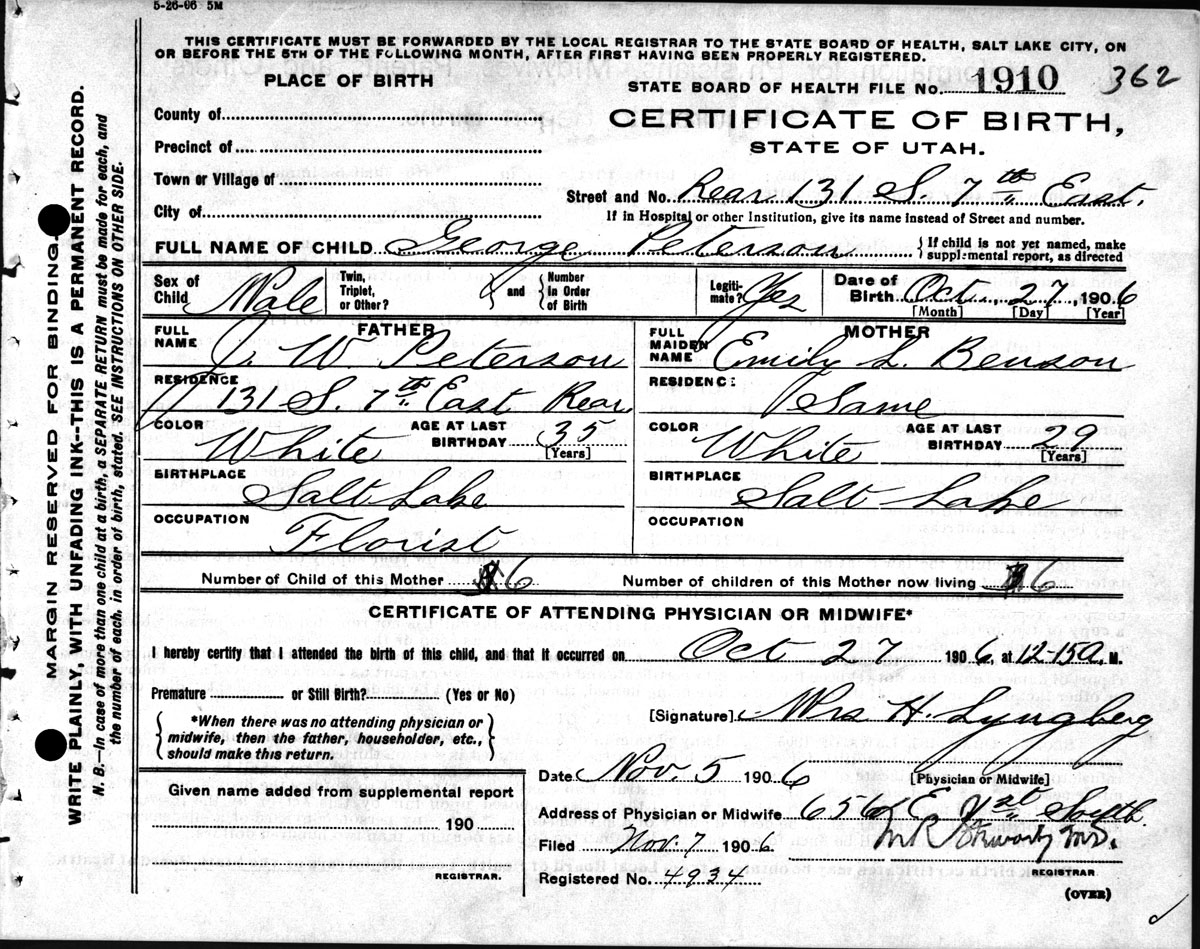 5-26-06 5M
THIS CERTIFICATE MUST BE FORWARDED BY THE LOCAL REGISTRAR TO THE STATE BOARD OF HEALTH, SALT LAKE CITY, ON
OR BEFORE THE 5TH OF THE FOLLOWING MONTH, AFTER FIRST HAVING BEEN PROPERLY REGISTERED.
PLACE OF BIRTH
STATE BOARD OF HEALTH FILE No. 1910 362
County of
CERTIFICATE OF BIRTH,
Precinct of
STATE OF UTAH.
Town or Village of
Street and No. Rear 131 S. 7th East.
City of
If in Hospital or other Institution, give its name instead of Street and number.
FULL NAME OF CHILD George Peterson { If child is not yet named, make
supplemental report, as directed
Sex of Child Male
Twin, Triplet, or Other? } and { Number in Order of Birth
Legiti- mate? Yes
Date of Birth Oct. 27, 1906
[Month] [Day] [Year]
FATHER
FULL NAME J. W. Peterson
MOTHER
FULL MAIDEN NAME Emily L. Benson
RESIDENCE 131 S. 7th East Rear
RESIDENCE Same
COLOR White AGE AT LAST BIRTHDAY 35 [Years]
COLOR White AGE AT LAST BIRTHDAY 29 [Years]
BIRTHPLACE Salt Lake
BIRTHPLACE Salt Lake
OCCUPATION Florist
OCCUPATION
Number of Child of this Mother 6 Number of children of this Mother now living 6
CERTIFICATE OF ATTENDING PHYSICIAN OR MIDWIFE*
I hereby certify that I attended the birth of this child, and that it occurred on Oct 27 1906, at 12-15 a. M.
Premature or Still Birth? (Yes or No)
{ *When there was no attending physician or
midwife, then the father, householder, etc.,
should make this return. }
[Signature] Mrs H. Lyngberg
[Physician or Midwife]
Date Nov. 5 1906
Given name added from supplemental report
190
REGISTRAR.
Address of Physician or Midwife 656 E 1st South
Filed Nov. 7 1906
REGISTRAR
Registered No. 4934
(OVER)
MARGIN RESERVED FOR BINDING.
WRITE PLAINLY, WITH UNFADING INK--THIS IS A PERMANENT RECORD.
N. B.—In case of more than one child at a birth, a SEPARATE RETURN must be made for each, and
the number of each, in order of birth, stated. SEE INSTRUCTIONS ON OTHER SIDE.